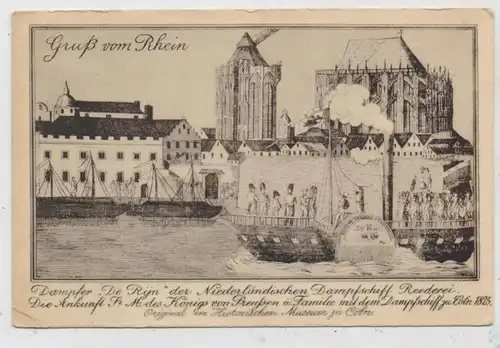 Gruß vom Rhein
Dampfer "De Rijn" der Niederländischen Dampfschiff Reederei.
Die Ankunft Sr. M. des Königs von Preußen u. Familie mit dem Dampfschiff zu Cöln 1825.
Original im Historischen Museum zu Cöln.